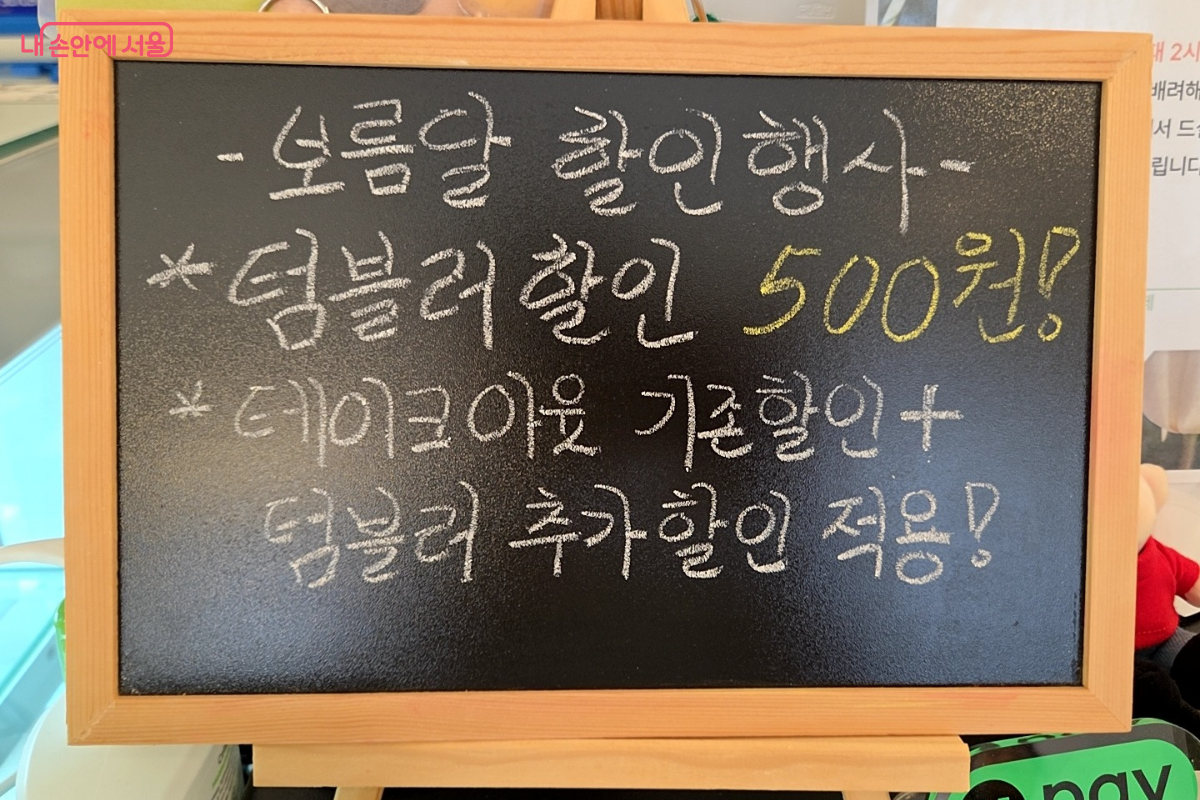 내 손안에 서울
- 보름달 할인행사 -
* 텀블러 할인 500원!
* 테이크아웃 기존할인 +
텀블러 추가할인 적용!
대 2시
배려해
서 드
립니다
pay